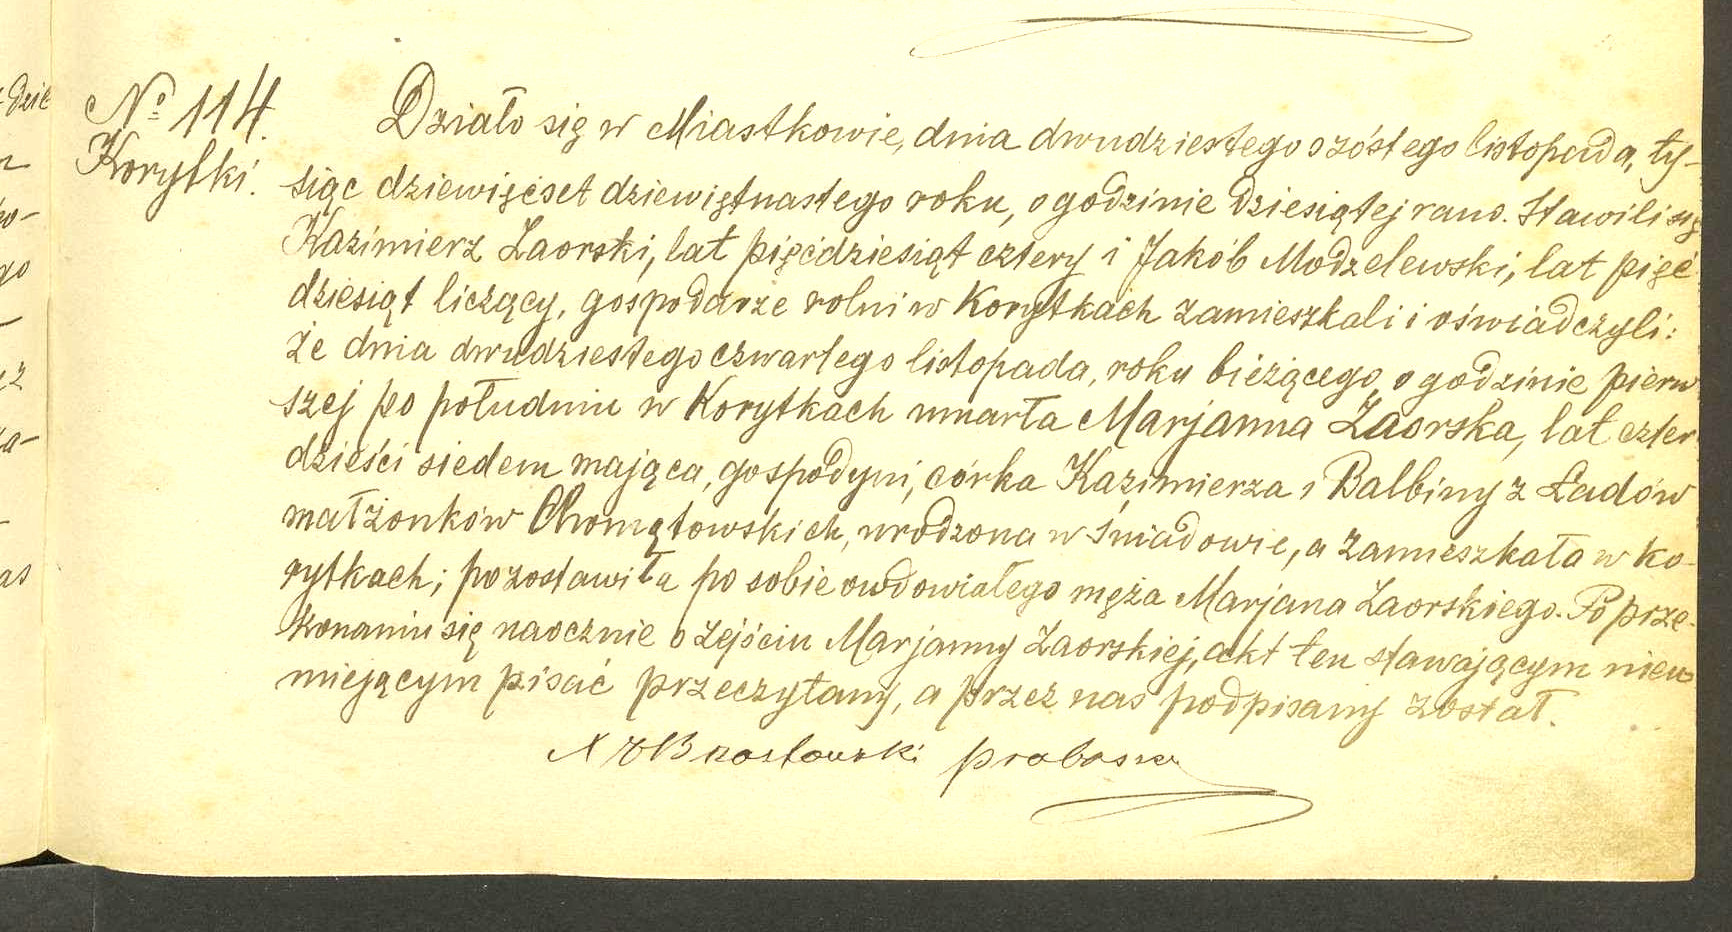 № 114.
Korytki.
Działo się w Miastkowie, dnia dwudziestego szóstego listopada, ty-
siąc dziewięćset dziewiętnastego roku, o godzinie dziesiątej rano. Stawili się
Kazimierz Zaorski, lat pięćdziesiąt cztery i Jakób Modzelewski, lat pięć
dziesiąt liczący, gospodarze rolni w Korytkach zamieszkali i oświadczyli:
że dnia dwudziestego czwartego listopada, roku bieżącego, o godzinie pierw
szej po południu w Korytkach umarła Marjanna Zaorska, lat czter
dzieści siedem mająca, gospodyni, córka Kazimierza i Balbiny z Ładów
małżonków Chomętowskich, urodzona w Śniadowie, a zamieszkała w Ko-
rytkach; pozostawiła po sobie owdowiałego męża Marjana Zaorskiego. Po prze-
konaniu się naocznie o zejściu Marjanny Zaorskiej, akt ten stawającym nieu
miejącym pisać przeczytany, a przez nas podpisany został.
proboszcz
dzie
go
as